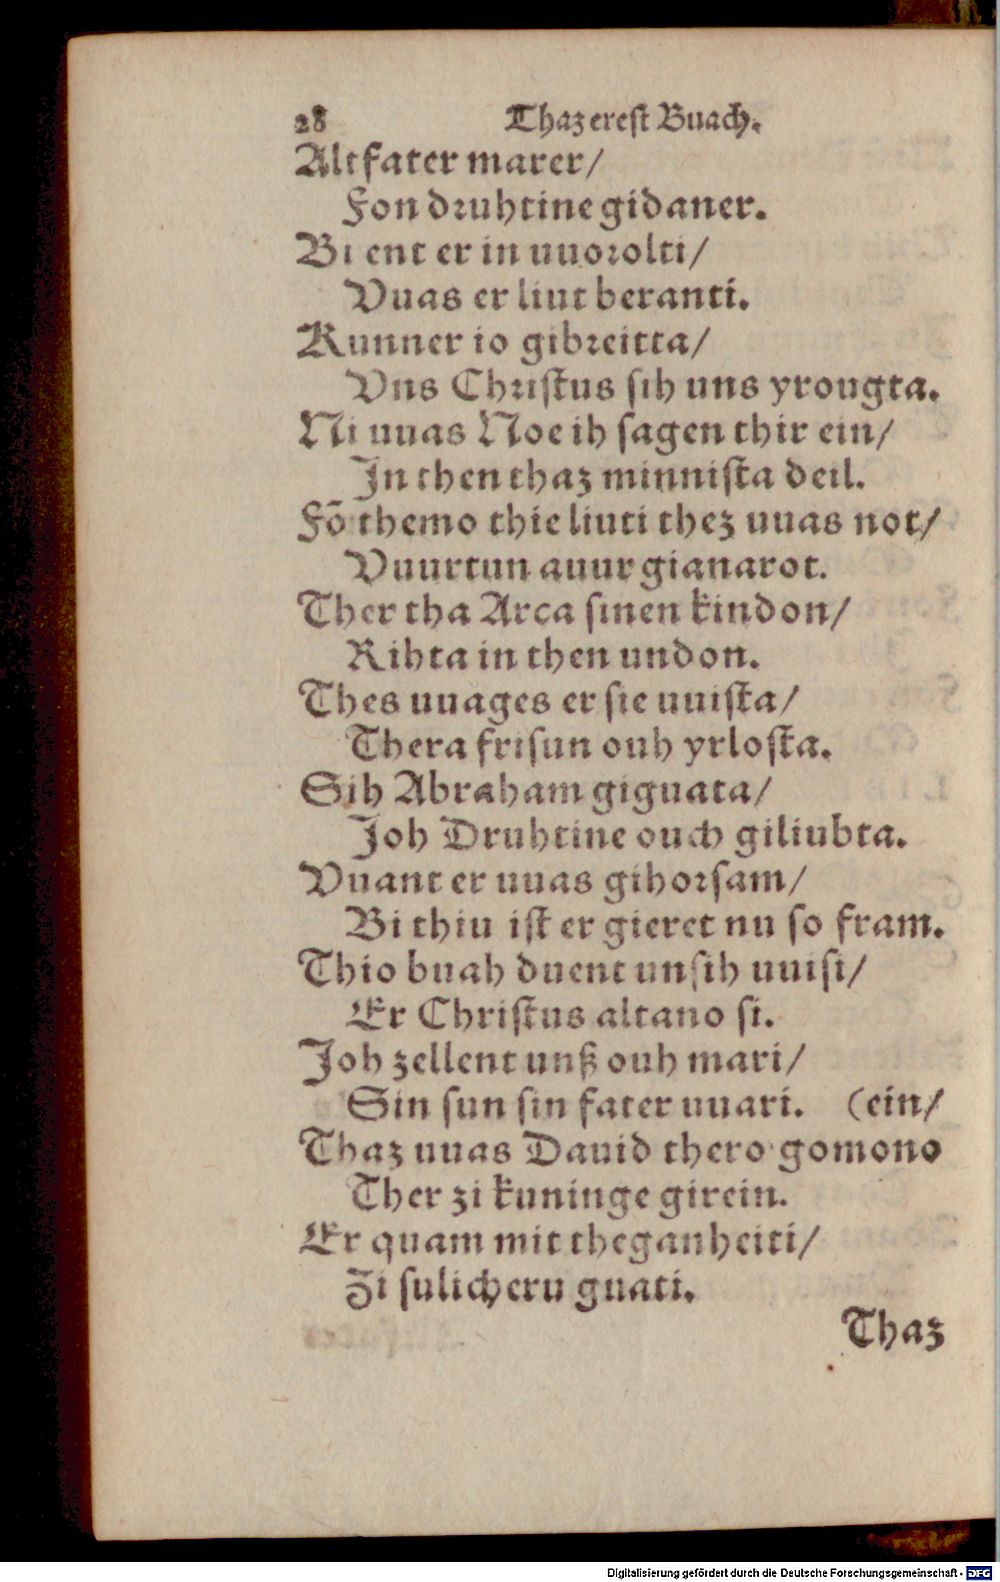 28 Thaz erest Buach.
Altfater marer/
Fon druhtine gidaner.
Bi ent er in uuorolti/
Vuas er liut beranti.
Kunner io gibreitta/
Vns Christus sih uns yrougta.
Ni uuas Noe ih sagen thir ein/
In then thaz minnista deil.
Fō themo thie liuti thez uuas not/
Vuurtun auur gianarot.
Ther tha Arca sinen kindon/
Rihta in then undon.
Thes uuages er sie uuista/
Thera frisun ouh yrlosta.
Sih Abraham giguata/
Joh Druhtine ouch giliubta.
Vuant er uuas gihorsam/
Bi thiu ist er gieret nu so fram.
Thio buah duent unsih uuisi/
Er Christus altano si.
Joh zellent unß ouh mari/
Sin sun sin fater uuari. (ein/
Thaz uuas Dauid thero gomono
Ther zi kuninge girein.
Er quam mit theganheiti/
Zi sulicheru guati.
Thaz
Digitalisierung gefördert durch die Deutsche Forschungsgemeinschaft - DFG